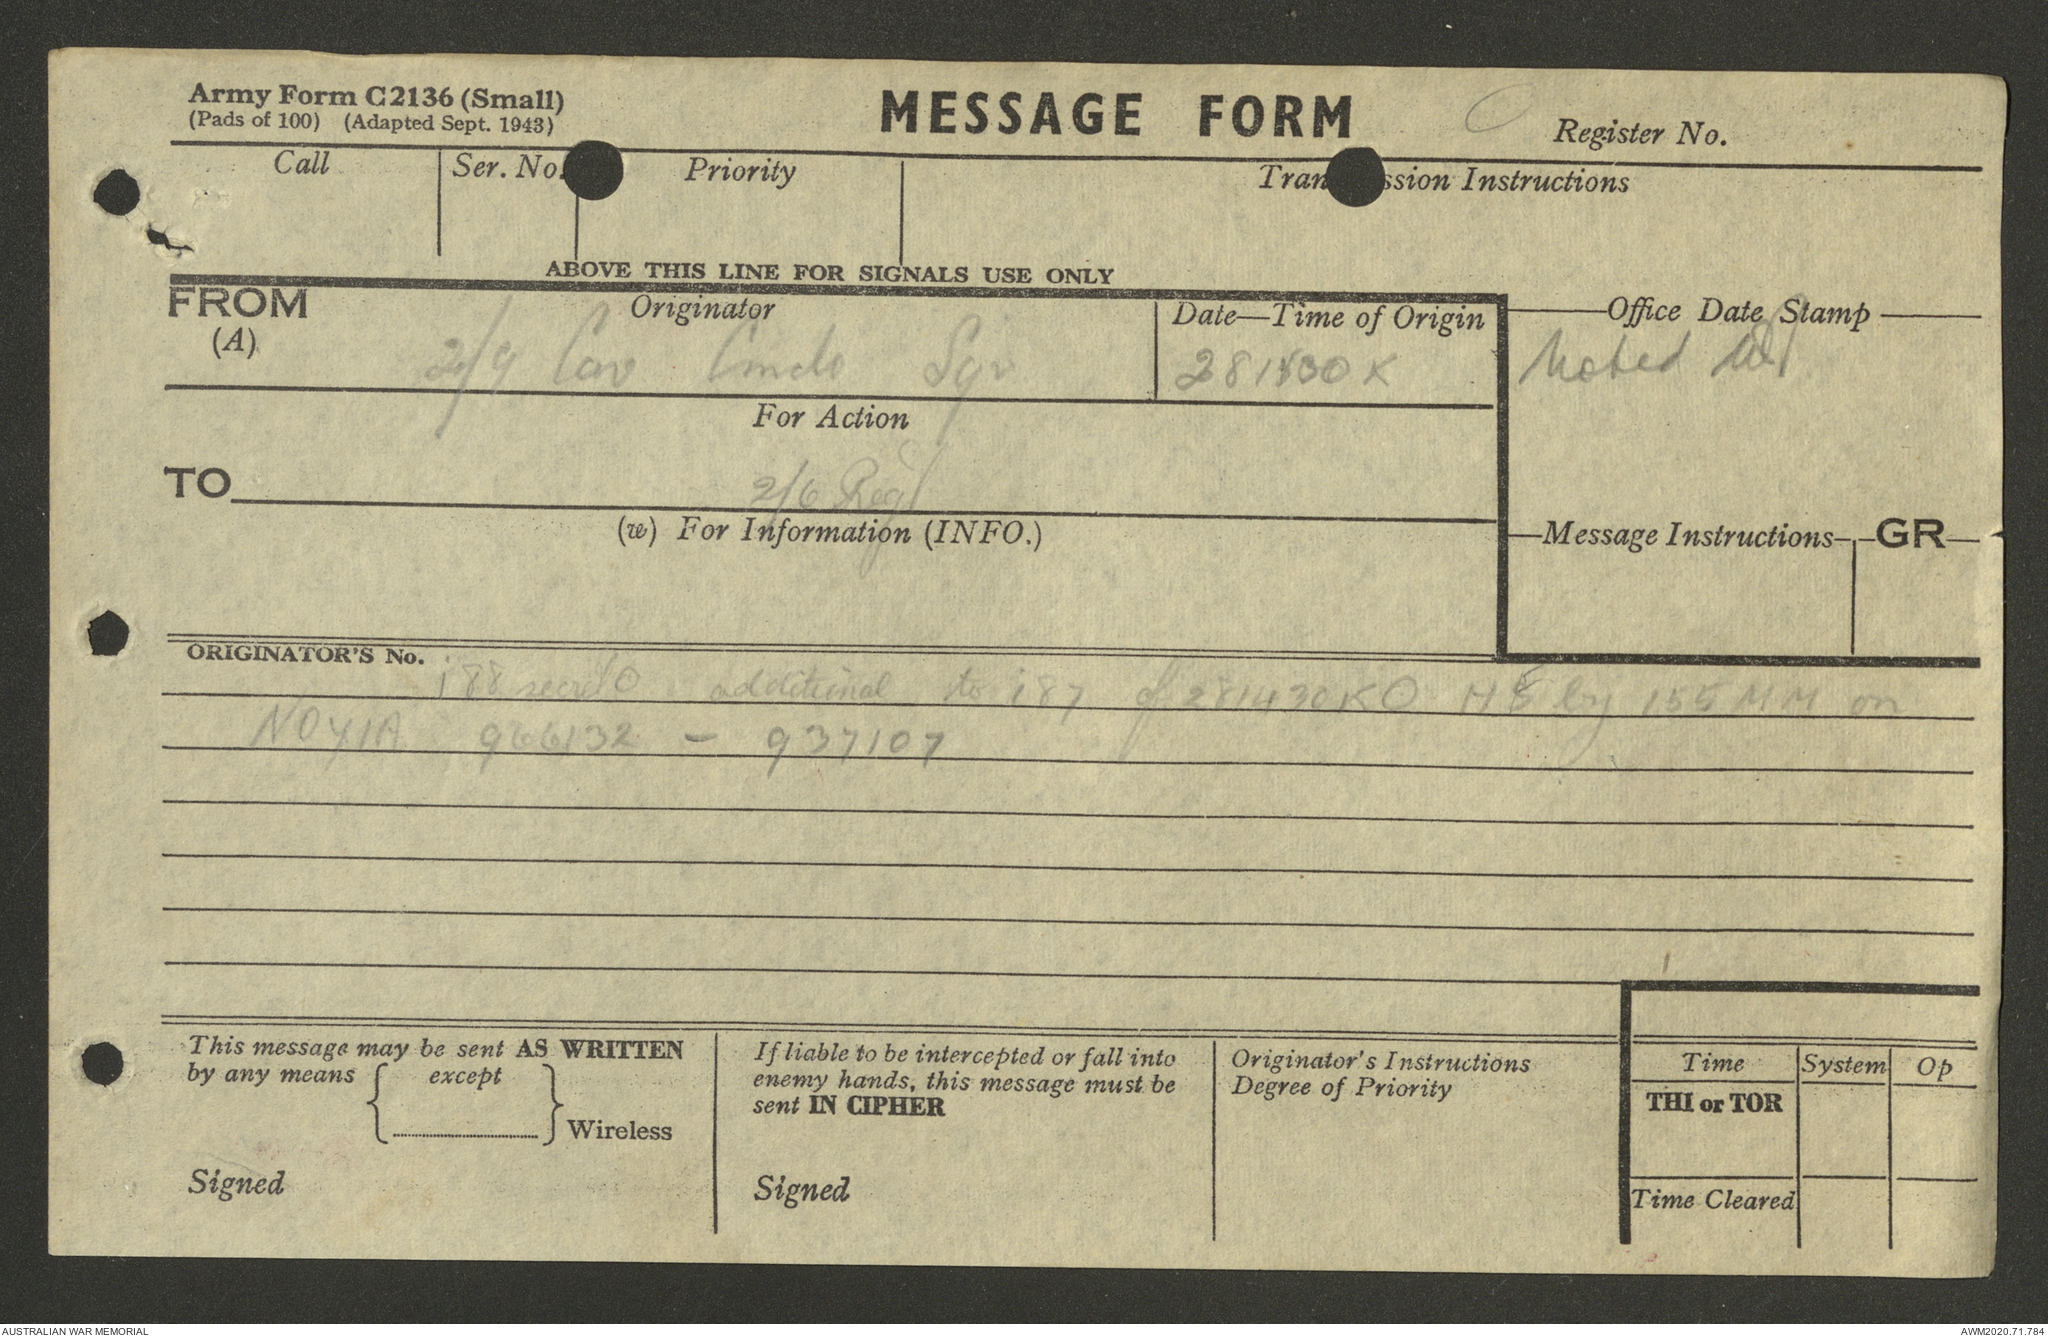 Army Form C2136 (Small)
(Pads of 100) (Adapted Sept. 1943)
MESSAGE FORM
Register No.
Call Ser. No. Priority Transmission Instructions
ABOVE THIS LINE FOR SIGNALS USE ONLY
FROM
(A)
Originator
2/9 Cav Cmdo Sqn
Date—Time of Origin
281830K
Office Date Stamp
Noted
For Action
TO
2/6 Regt
(w) For Information (INFO.)
Message Instructions GR
ORIGINATOR'S No.
i88 secret O additional to i87 of 281430K O HE by 155 MM on
NOYIA 966132 - 937107
This message may be sent AS WRITTEN
by any means { except }
Wireless
Signed
If liable to be intercepted or fall into
enemy hands, this message must be
sent IN CIPHER
Signed
Originator's Instructions
Degree of Priority
Time System Op
THI or TOR
Time Cleared
AUSTRALIAN WAR MEMORIAL
AWM2020.71.784